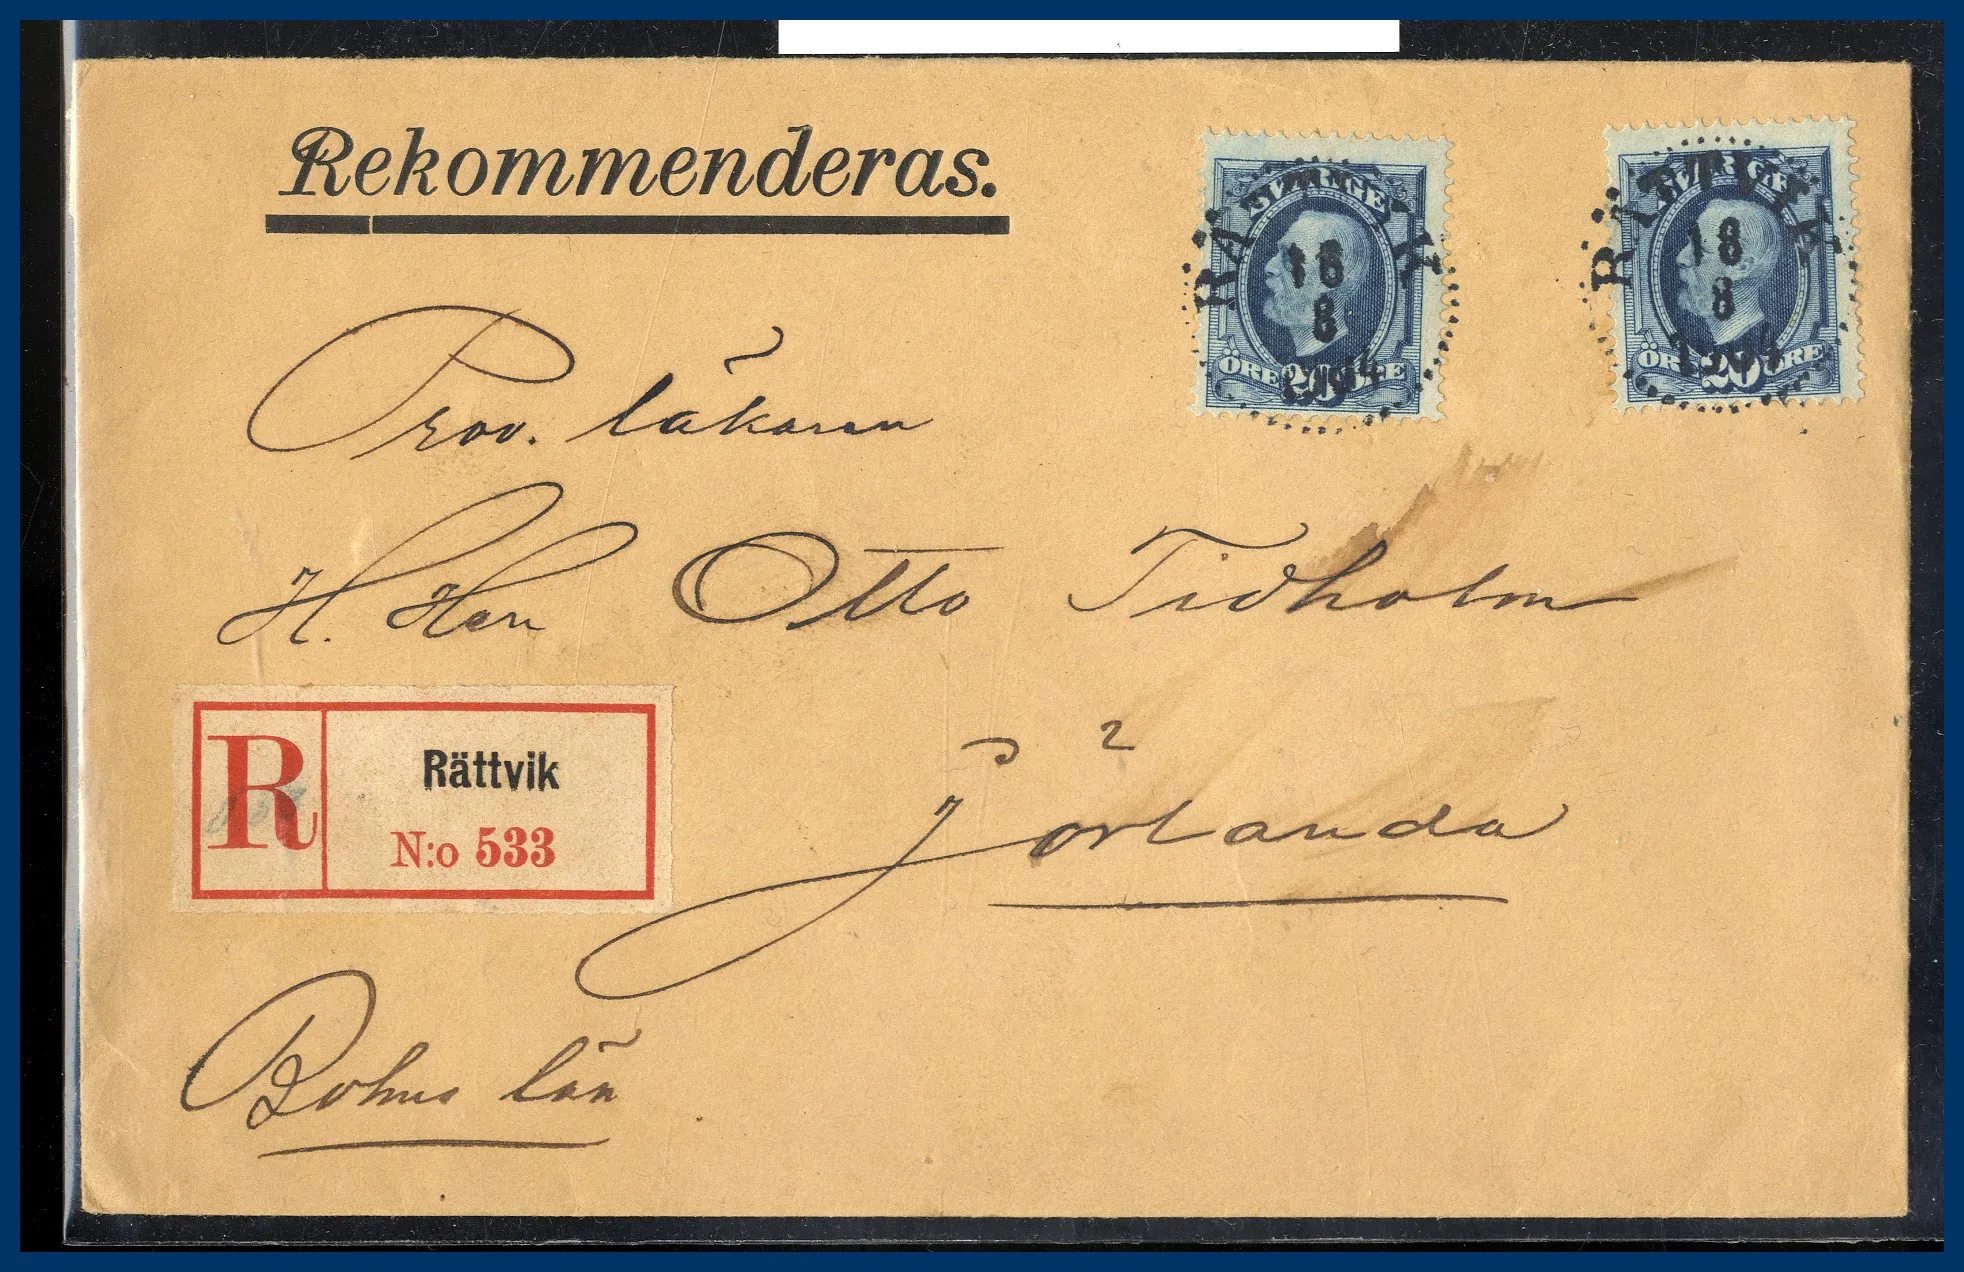 Rekommenderas.
SVERIGE
ÖRE 20 ÖRE
RÄTTVIK
18
8
1904
SVERIGE
ÖRE 20 ÖRE
RÄTTVIK
18
8
1904
Prov. läkaren
H. Herr Otto Tidholm
R
Rättvik
N:o 533
Jörlanda
Bohus län